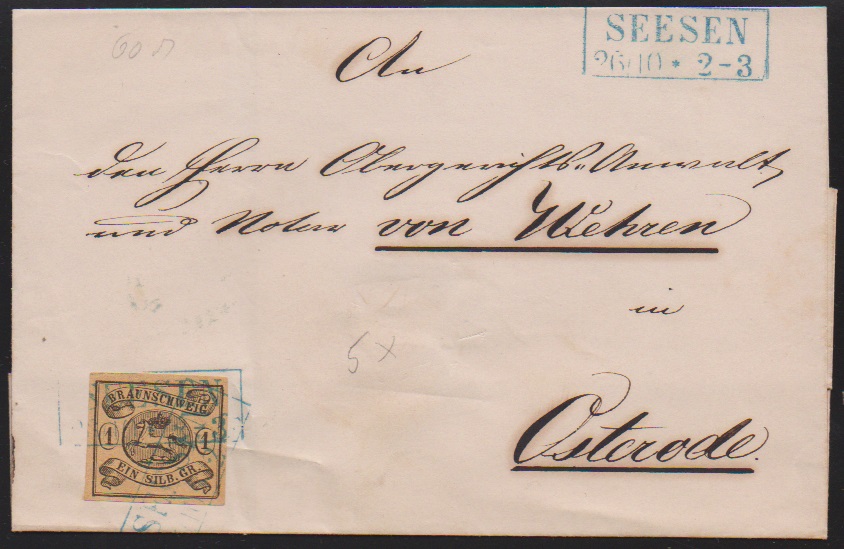 60 n
SEESEN
26/10 * 2-3
An
den Herrn Obergerichts-Anwalt
und Notar von Wehren
in
5 x
Osterode.
SEESEN
BRAUNSCHWEIG
1 1
EIN SILB. GR.